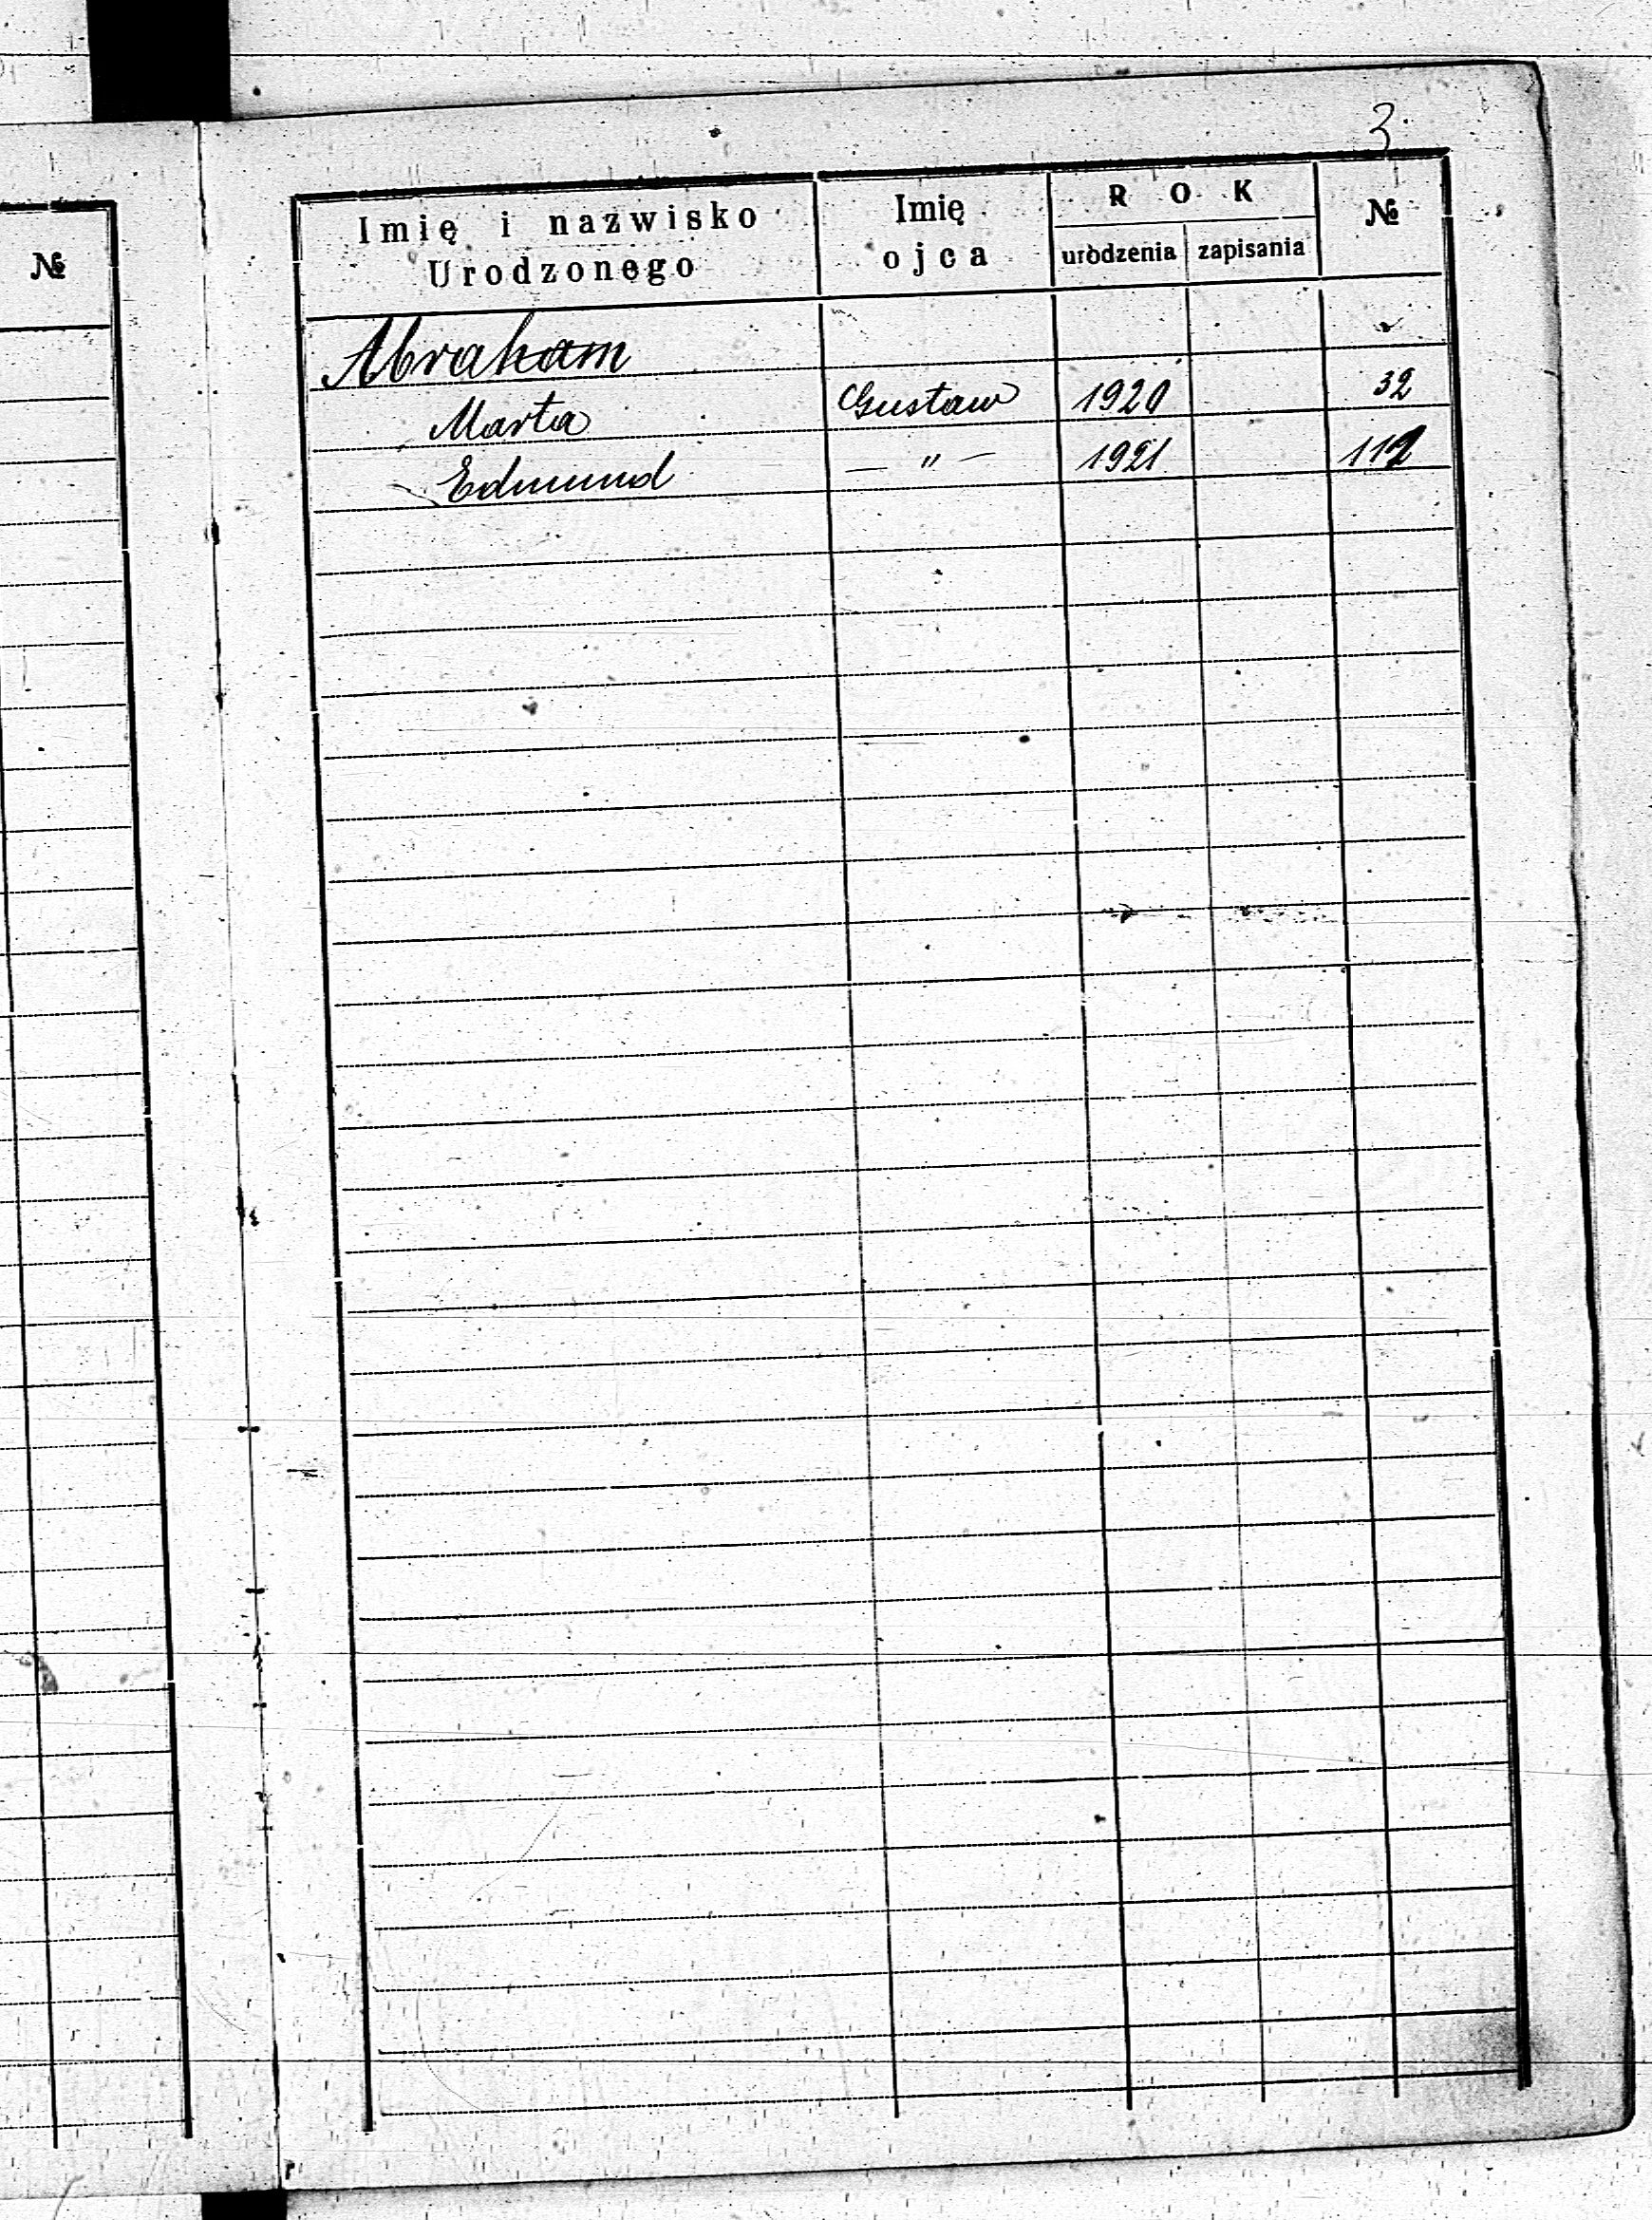 3.
№
Imię i nazwisko Urodzonego Imię ojca ROK urodzenia zapisania №
Abraham
Marta Gustaw 1920 32
Edmund — " — 1921